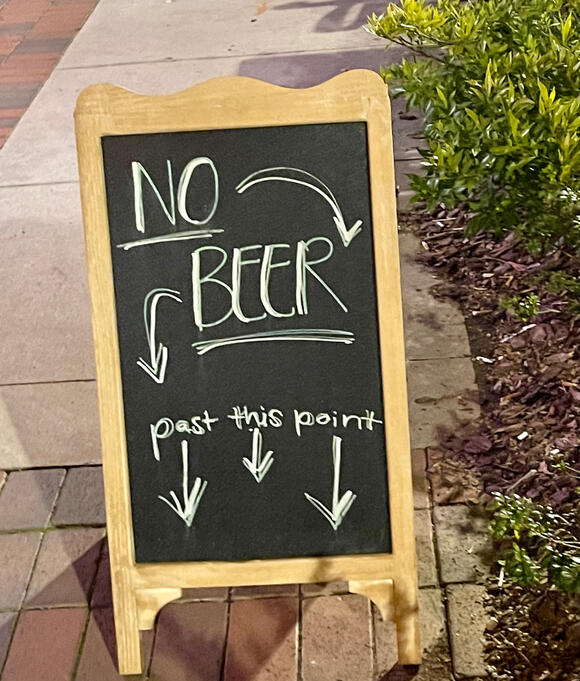 NO
BEER
past this point